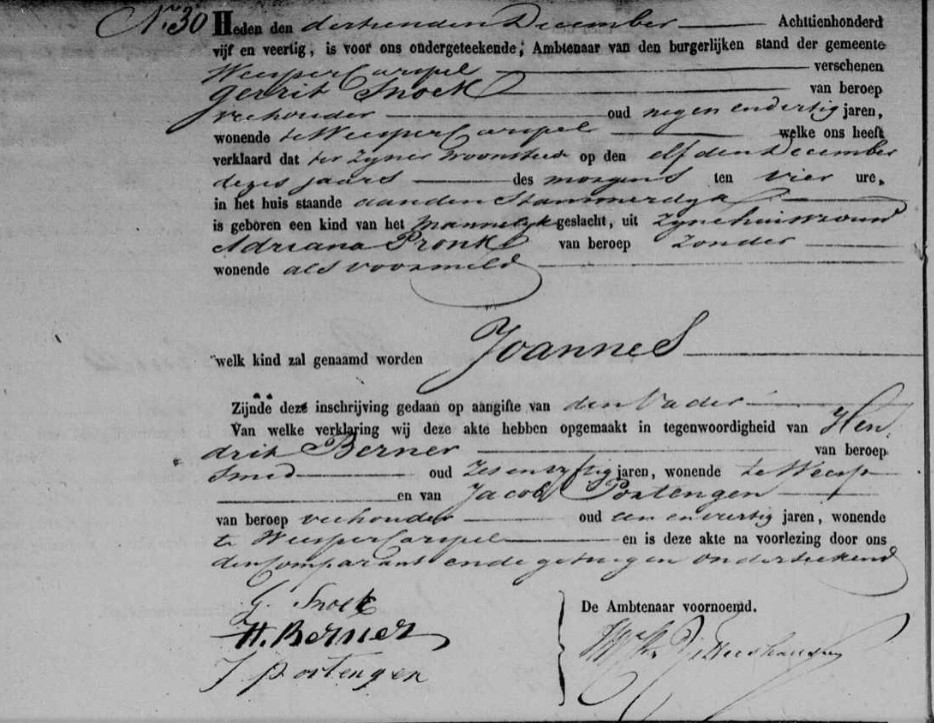 No. 30 Heden den dertienden December Achttienhonderd
vijf en veertig, is voor ons ondergeteekende, Ambtenaar van den burgerlijken stand der gemeente
WeesperCarspel verschenen
Gerrit Snoek van beroep
veehouder oud negen en dertig jaren,
wonende te WeesperCarspel welke ons heeft
verklaard dat ter zyner woonstede op den elfden December
dezes jaars des morgens ten vier ure,
in het huis staande aan den Stammerdyk
is geboren een kind van het mannelyk geslacht, uit zyne huisvrouw
Adriana Pronk van beroep zonder
wonende als voormeld
welk kind zal genaamd worden Joannes
Zijnde deze inschrijving gedaan op aangifte van den Vader
Van welke verklaring wij deze akte hebben opgemaakt in tegenwoordigheid van Hen
drik Berner van beroep
Smid oud zes en vyftig jaren, wonende te Weesp
en van Jacob Portengen
van beroep veehouder oud een en veertig jaren, wonende
te WeesperCarspel en is deze akte na voorlezing door ons
den Comparant en de getuigen onderteekend
G. Snoek
H. Berner
J portengen
De Ambtenaar voornoemd.